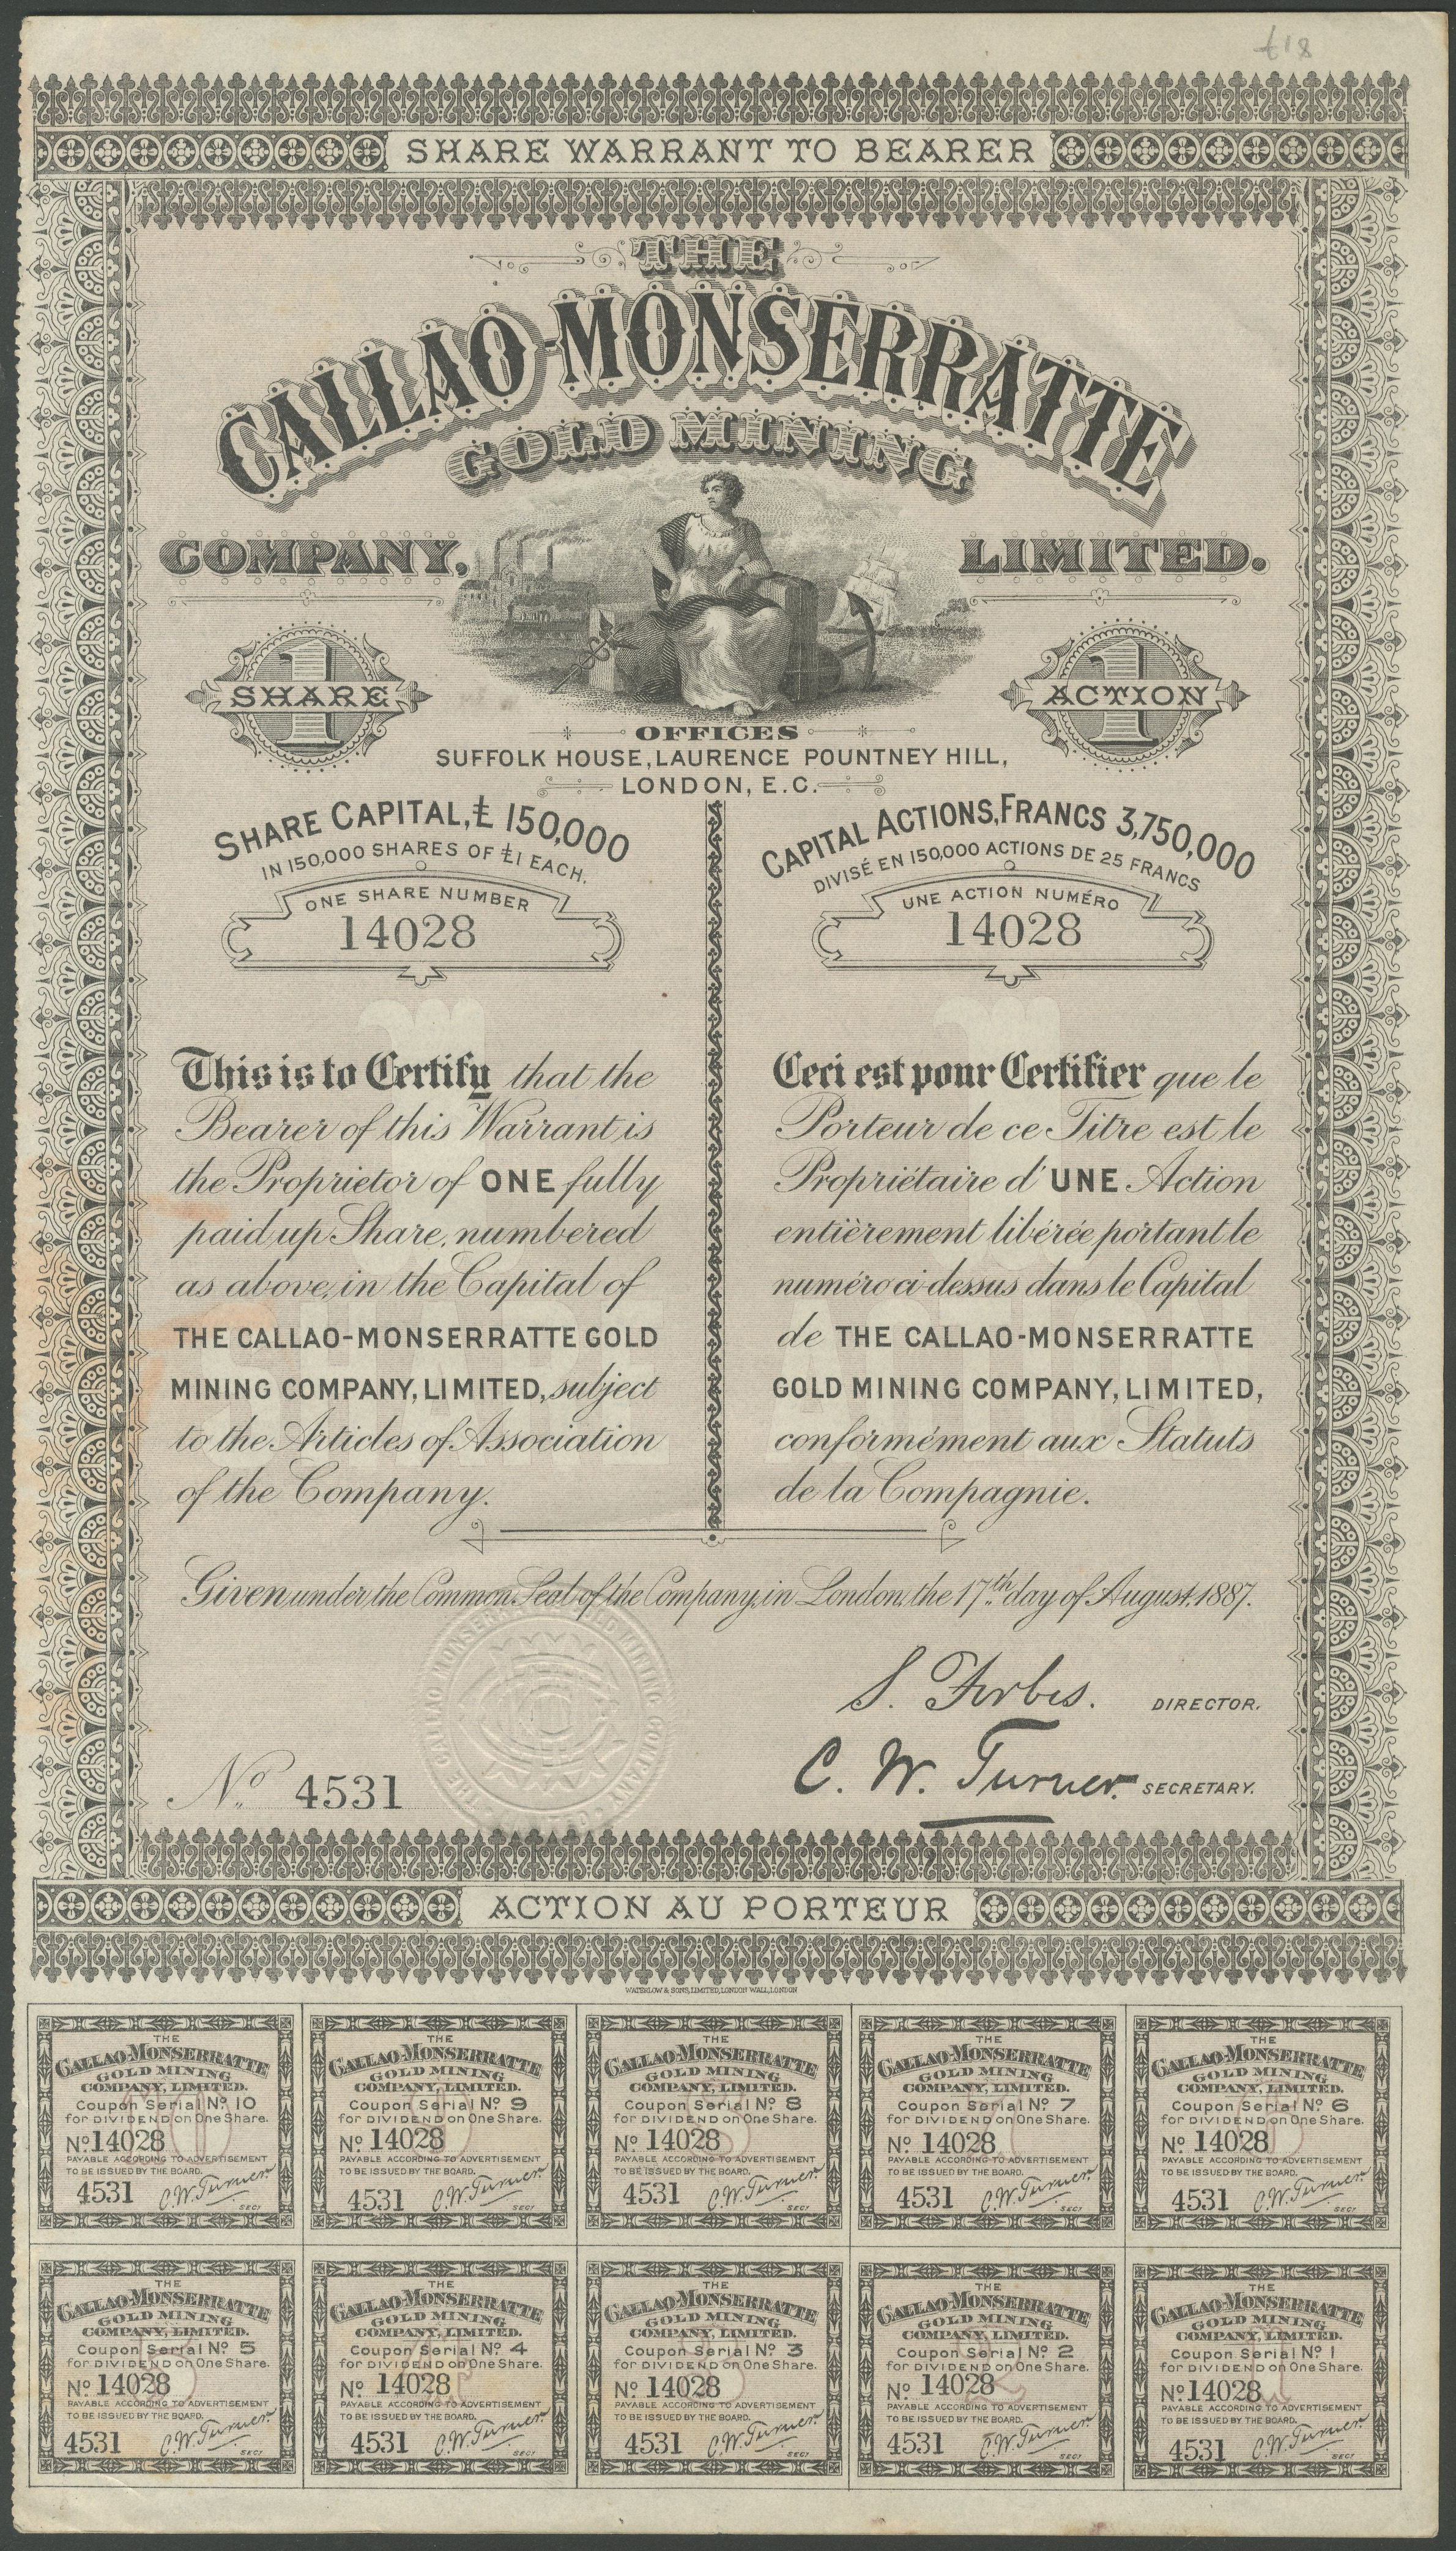 £18
SHARE WARRANT TO BEARER
THE
CALLAO-MONSERRATTE
GOLD MINING
COMPANY, LIMITED.
1 SHARE
1 ACTION
OFFICES
SUFFOLK HOUSE, LAURENCE POUNTNEY HILL,
LONDON, E.C.
SHARE CAPITAL, £ 150,000
IN 150,000 SHARES OF £1 EACH.
ONE SHARE NUMBER
14028
CAPITAL ACTIONS, FRANCS 3,750,000
DIVISÉ EN 150,000 ACTIONS DE 25 FRANCS
UNE ACTION NUMÉRO
14028
This is to Certify that the
Bearer of this Warrant is
the Proprietor of ONE fully
paid up Share, numbered
as above, in the Capital of
THE CALLAO-MONSERRATTE GOLD
MINING COMPANY, LIMITED, subject
to the Articles of Association
of the Company.
Ceci est pour Certifier que le
Porteur de ce Titre est le
Propriétaire d'UNE Action
entièrement libérée portant le
numéro ci-dessus dans le Capital
de THE CALLAO-MONSERRATTE
GOLD MINING COMPANY, LIMITED,
conformément aux Statuts
de la Compagnie.
Given under the Common Seal of the Company, in London, the 17th day of August, 1887.
S. Forbes. DIRECTOR.
C. W. Turner. SECRETARY.
No. 4531
ACTION AU PORTEUR
WATERLOW & SONS, LIMITED, LONDON WALL, LONDON
THE
CALLAO-MONSERRATTE
GOLD MINING
COMPANY, LIMITED.
Coupon Serial No. 10
for DIVIDEND on One Share.
No. 14028
PAYABLE ACCORDING TO ADVERTISEMENT
TO BE ISSUED BY THE BOARD.
4531 C.W. Turner.
SECY
THE
CALLAO-MONSERRATTE
GOLD MINING
COMPANY, LIMITED.
Coupon Serial No. 9
for DIVIDEND on One Share.
No. 14028
PAYABLE ACCORDING TO ADVERTISEMENT
TO BE ISSUED BY THE BOARD.
4531 C.W. Turner.
SECY
THE
CALLAO-MONSERRATTE
GOLD MINING
COMPANY, LIMITED.
Coupon Serial No. 8
for DIVIDEND on One Share.
No. 14028
PAYABLE ACCORDING TO ADVERTISEMENT
TO BE ISSUED BY THE BOARD.
4531 C.W. Turner.
SECY
THE
CALLAO-MONSERRATTE
GOLD MINING
COMPANY, LIMITED.
Coupon Serial No. 7
for DIVIDEND on One Share.
No. 14028
PAYABLE ACCORDING TO ADVERTISEMENT
TO BE ISSUED BY THE BOARD.
4531 C.W. Turner.
SECY
THE
CALLAO-MONSERRATTE
GOLD MINING
COMPANY, LIMITED.
Coupon Serial No. 6
for DIVIDEND on One Share.
No. 14028
PAYABLE ACCORDING TO ADVERTISEMENT
TO BE ISSUED BY THE BOARD.
4531 C.W. Turner.
SECY
THE
CALLAO-MONSERRATTE
GOLD MINING
COMPANY, LIMITED.
Coupon Serial No. 5
for DIVIDEND on One Share.
No. 14028
PAYABLE ACCORDING TO ADVERTISEMENT
TO BE ISSUED BY THE BOARD.
4531 C.W. Turner.
SECY
THE
CALLAO-MONSERRATTE
GOLD MINING
COMPANY, LIMITED.
Coupon Serial No. 4
for DIVIDEND on One Share.
No. 14028
PAYABLE ACCORDING TO ADVERTISEMENT
TO BE ISSUED BY THE BOARD.
4531 C.W. Turner.
SECY
THE
CALLAO-MONSERRATTE
GOLD MINING
COMPANY, LIMITED.
Coupon Serial No. 3
for DIVIDEND on One Share.
No. 14028
PAYABLE ACCORDING TO ADVERTISEMENT
TO BE ISSUED BY THE BOARD.
4531 C.W. Turner.
SECY
THE
CALLAO-MONSERRATTE
GOLD MINING
COMPANY, LIMITED.
Coupon Serial No. 2
for DIVIDEND on One Share.
No. 14028
PAYABLE ACCORDING TO ADVERTISEMENT
TO BE ISSUED BY THE BOARD.
4531 C.W. Turner.
SECY
THE
CALLAO-MONSERRATTE
GOLD MINING
COMPANY, LIMITED.
Coupon Serial No. 1
for DIVIDEND on One Share.
No. 14028
PAYABLE ACCORDING TO ADVERTISEMENT
TO BE ISSUED BY THE BOARD.
4531 C.W. Turner.
SECY